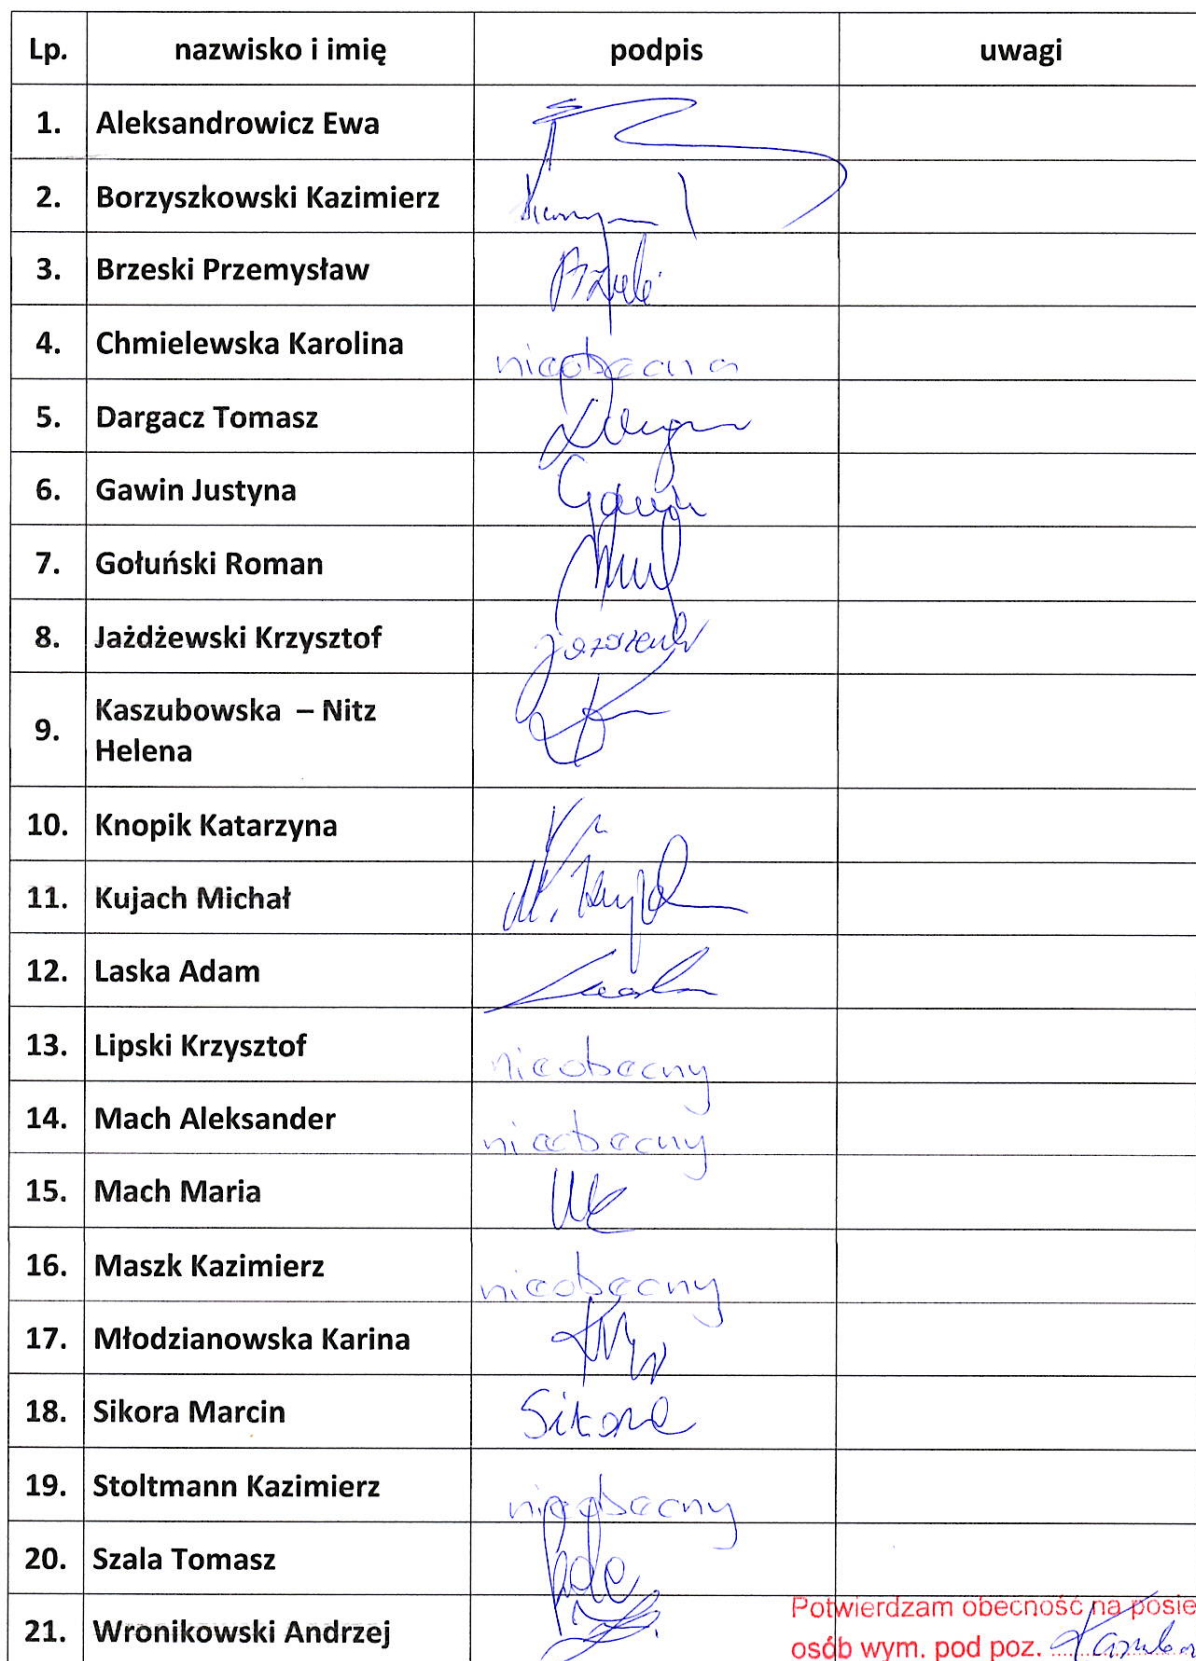 Lp. nazwisko i imię podpis uwagi
1. Aleksandrowicz Ewa
2. Borzyszkowski Kazimierz
3. Brzeski Przemysław
4. Chmielewska Karolina nieobecna
5. Dargacz Tomasz
6. Gawin Justyna Gawin
7. Gołuński Roman
8. Jażdżewski Krzysztof
9. Kaszubowska – Nitz
Helena
10. Knopik Katarzyna
11. Kujach Michał
12. Laska Adam
13. Lipski Krzysztof nieobecny
14. Mach Aleksander nieobecny
15. Mach Maria
16. Maszk Kazimierz nieobecny
17. Młodzianowska Karina
18. Sikora Marcin Sikora
19. Stoltmann Kazimierz nieobecny
20. Szala Tomasz
21. Wronikowski Andrzej
Potwierdzam obecność na posie
osób wym. pod poz.